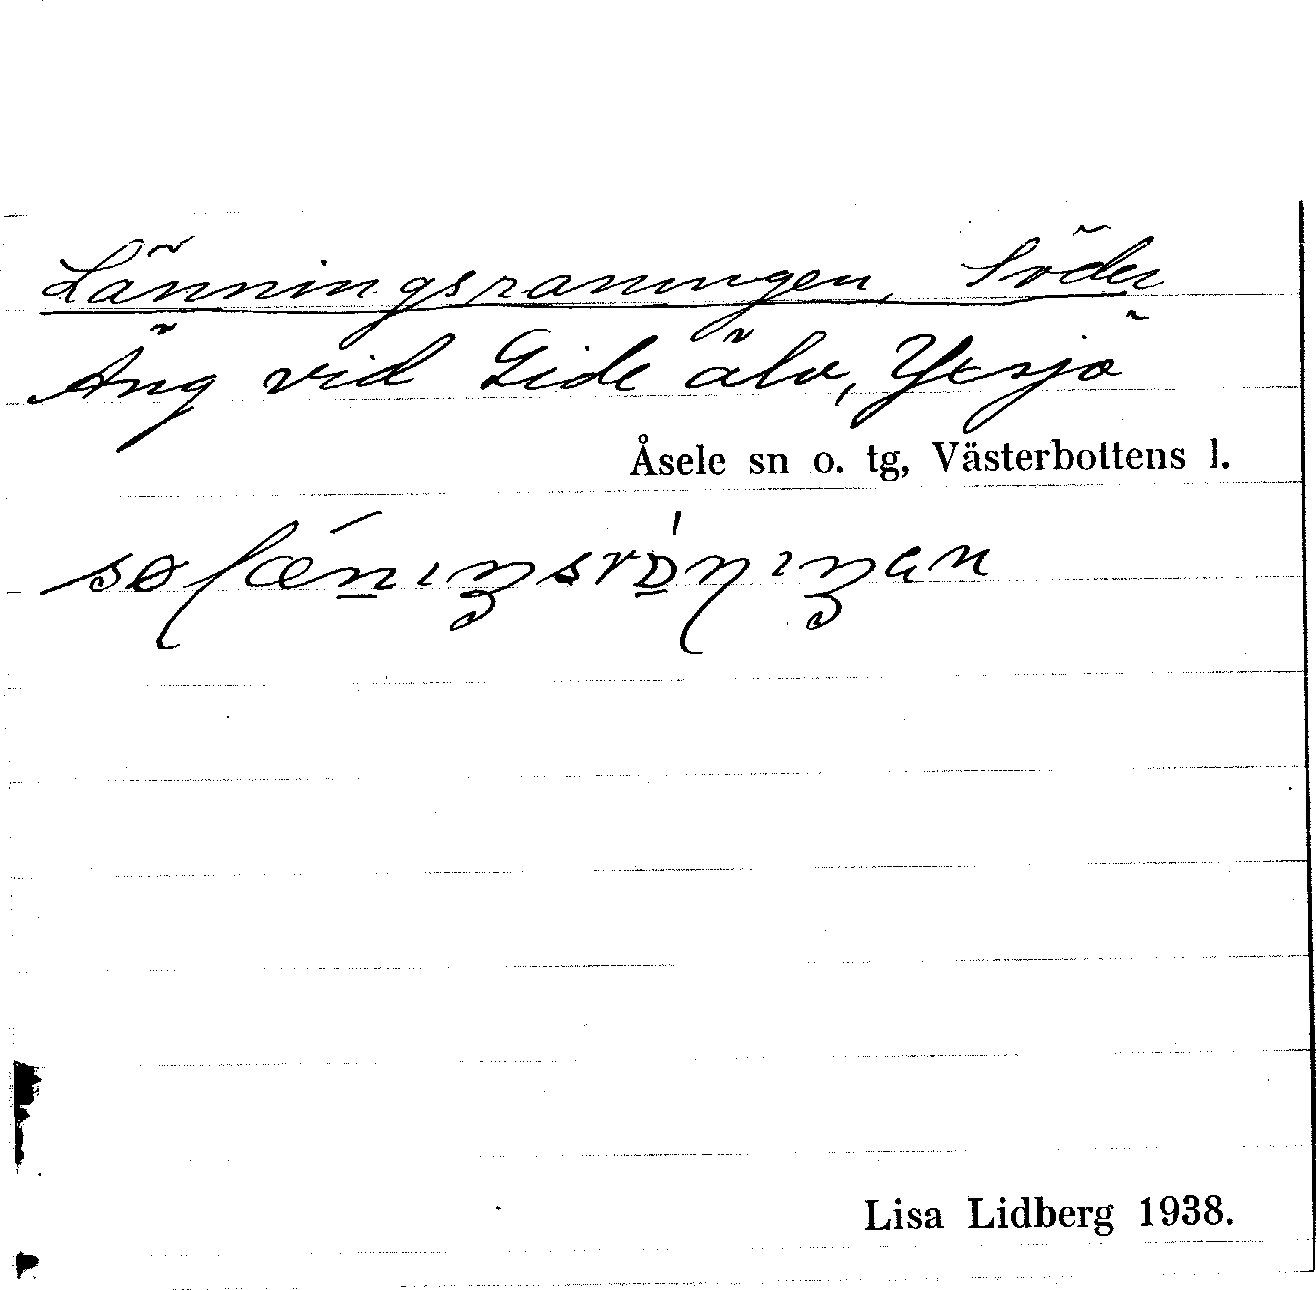 Länningsraningen, Söder
Äng vid Gide älv, Yttsjö
Åsele sn o. tg, Västerbottens l.
Lisa Lidberg 1938.